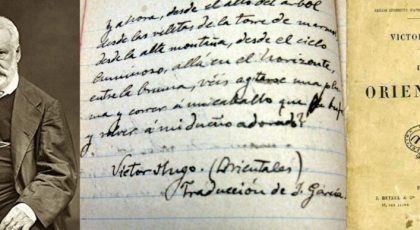 y ahora, desde el alto del arbol
desde las veletas de la torre de marmol
desde la alta montaña, desde el cielo
luminoso, allá en el horizonte,
entre la bruma, véis agitarse una plu
ma y correr á un caballo que
y volver á mi dueño adorado?
Victor Hugo. (Orientales)
Traducción de J. García.
VICTOR
ORIEN
J. HETZEL &